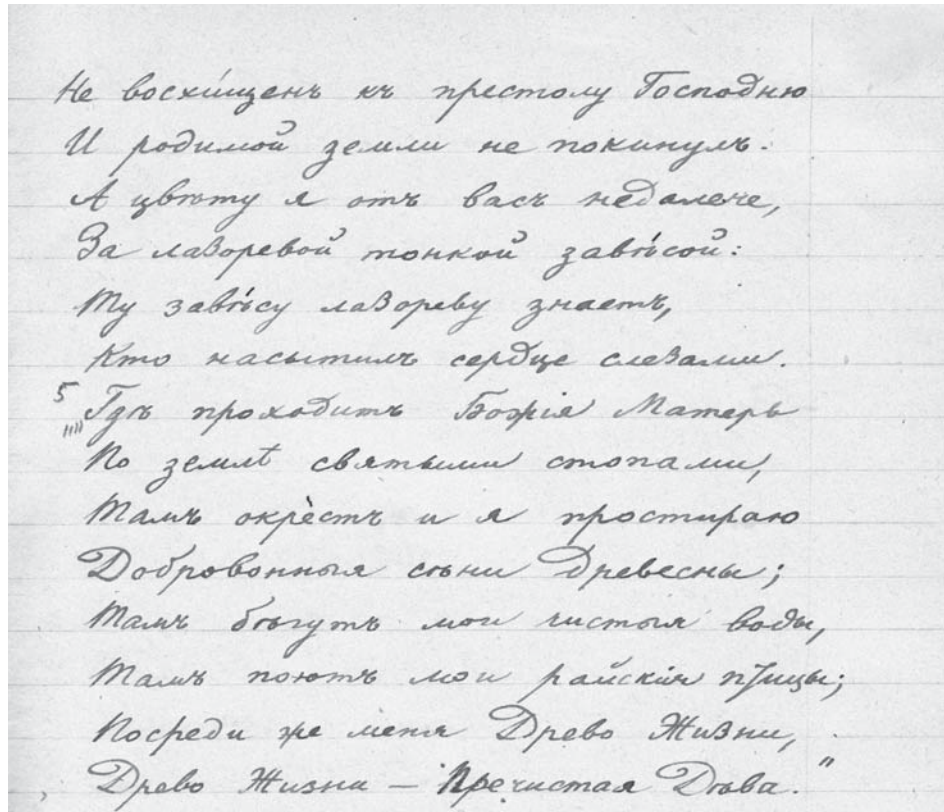 Не восхи́щенъ къ престолу Господню
И родимой земли не покинулъ:
А цвѣту я отъ васъ недалече,
За лазоревой тонкой завѣ́сой:
Ту завѣ́су лазореву знаетъ,
Кто насытилъ сердце слезами.
5 „„Гдѣ проходитъ Божія Матерь
По землѣ святыми стопами,
Тамъ окрѐстъ и я простираю
Добровонныя сѣни древесны;
Тамъ бѣгутъ мои чистыя воды,
Тамъ поютъ мои райскія птицы;
Посреди же меня Древо Жизни,
Древо Жизни — Пречистая Дѣва."